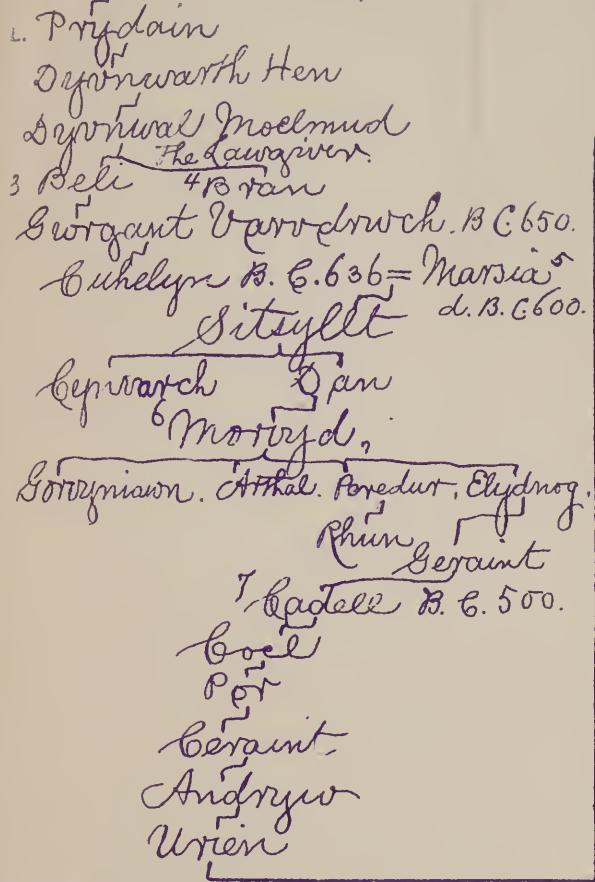 1. Prydain
Dyvnwarth Hen
Dyvnwal Moelmud
The Lawgiver.
3 Beli 4 Bran
Gworgant Varvdrwch. B.C. 650.
Cuhelyn B.C. 636 = Marsia 5
d. B.C. 600.
Sitsyllt
Cynvarch Dan
6 Morvyd,
Gorvyniawn. Arthal. Peredur. Elydnog.
Rhun
Geraint
7 Cadell B.C. 500.
Coel
Por
Ceraint
Andryw
Urien